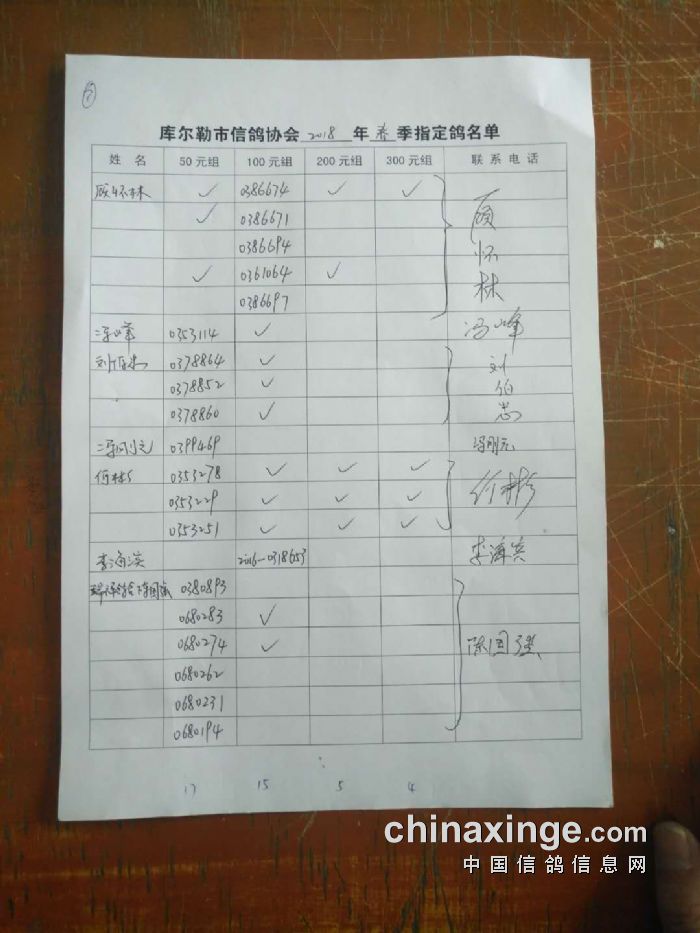 库尔勒市信鸽协会 2018 年 春 季指定鸽名单
姓 名 50元组 100元组 200元组 300元组 联系电话
顾怀林 ✓ 0386674 ✓ ✓ 顾怀林
✓ 0386671
0386694
✓ 0361064 ✓
0386697
冯峰 0353114 ✓ 冯峰
刘伯志 0378864 ✓ 刘伯志
0378852 ✓
0378860 ✓
冯刚元 0399469
0353278 ✓ ✓ ✓
0353229 ✓ ✓ ✓
0353251 ✓ ✓ ✓
李海滨 2016-0318653 李海宾
陈国强 0380893 陈国强
0680283 ✓
0680274 ✓
0680262
0680231
0680194
17 15 5 4
chinaxinge.com
中国信鸽信息网